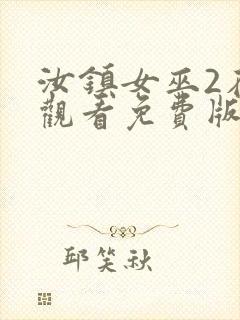 汝鎮女巫2
觀看免費版
邱笑秋